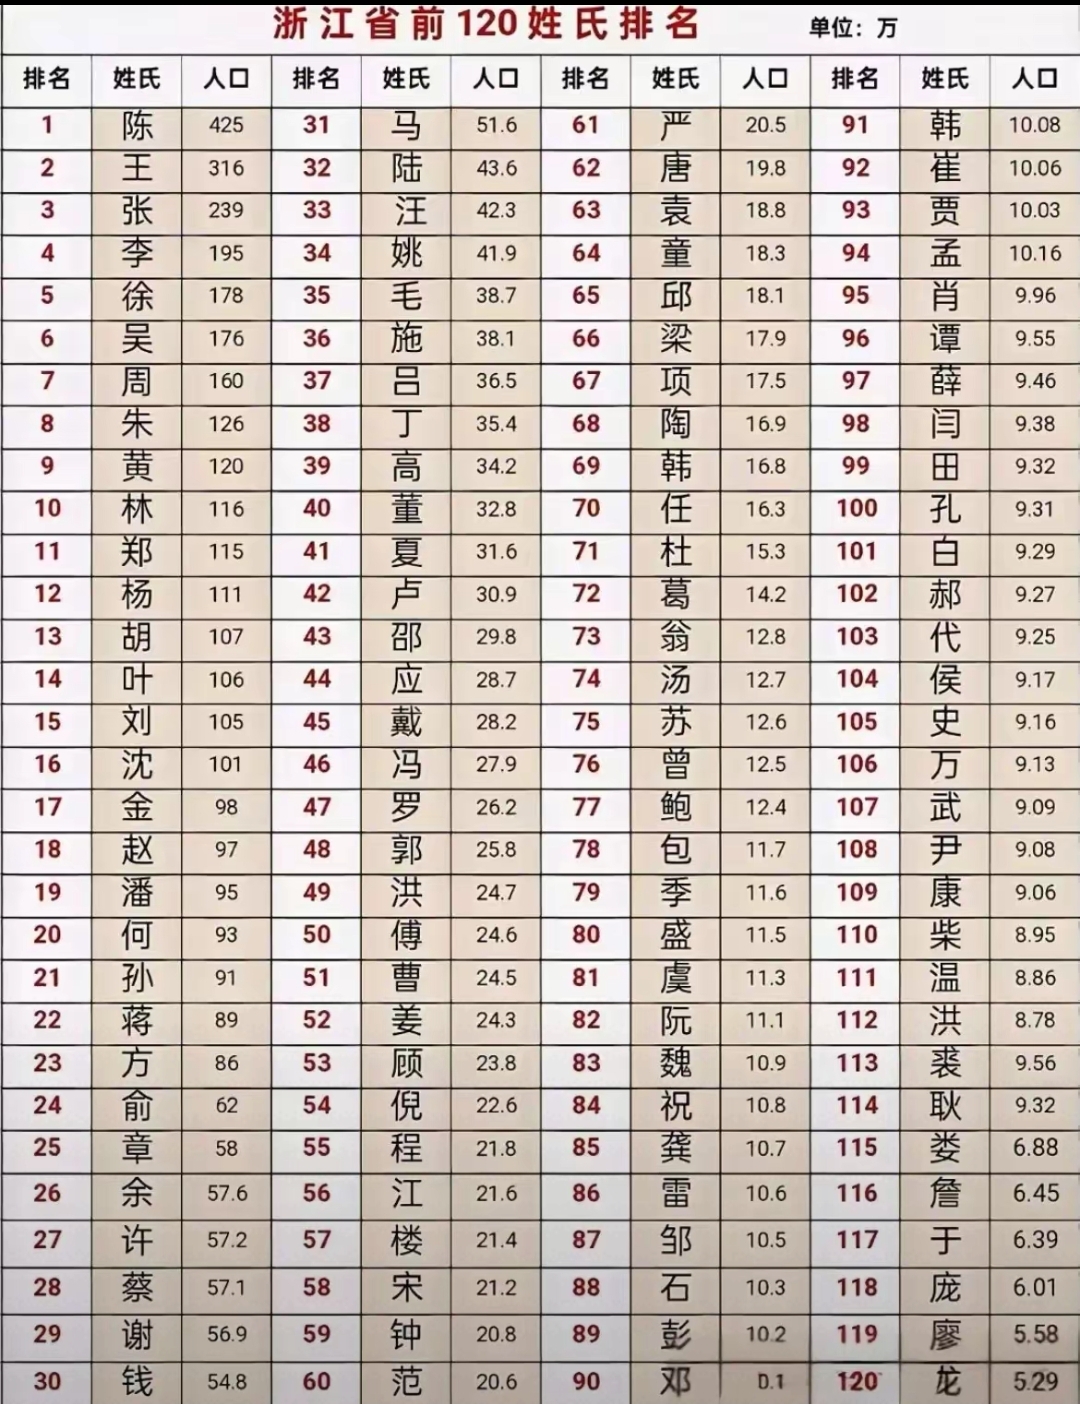 浙江省前120姓氏排名 单位：万
排名 姓氏 人口 排名 姓氏 人口 排名 姓氏 人口 排名 姓氏 人口
1 陈 425 31 马 51.6 61 严 20.5 91 韩 10.08
2 王 316 32 陆 43.6 62 唐 19.8 92 崔 10.06
3 张 239 33 汪 42.3 63 袁 18.8 93 贾 10.03
4 李 195 34 姚 41.9 64 童 18.3 94 孟 10.16
5 徐 178 35 毛 38.7 65 邱 18.1 95 肖 9.96
6 吴 176 36 施 38.1 66 梁 17.9 96 谭 9.55
7 周 160 37 吕 36.5 67 项 17.5 97 薛 9.46
8 朱 126 38 丁 35.4 68 陶 16.9 98 闫 9.38
9 黄 120 39 高 34.2 69 韩 16.8 99 田 9.32
10 林 116 40 董 32.8 70 任 16.3 100 孔 9.31
11 郑 115 41 夏 31.6 71 杜 15.3 101 白 9.29
12 杨 111 42 卢 30.9 72 葛 14.2 102 郝 9.27
13 胡 107 43 邵 29.8 73 翁 12.8 103 代 9.25
14 叶 106 44 应 28.7 74 汤 12.7 104 侯 9.17
15 刘 105 45 戴 28.2 75 苏 12.6 105 史 9.16
16 沈 101 46 冯 27.9 76 曾 12.5 106 万 9.13
17 金 98 47 罗 26.2 77 鲍 12.4 107 武 9.09
18 赵 97 48 郭 25.8 78 包 11.7 108 尹 9.08
19 潘 95 49 洪 24.7 79 季 11.6 109 康 9.06
20 何 93 50 傅 24.6 80 盛 11.5 110 柴 8.95
21 孙 91 51 曹 24.5 81 虞 11.3 111 温 8.86
22 蒋 89 52 姜 24.3 82 阮 11.1 112 洪 8.78
23 方 86 53 顾 23.8 83 魏 10.9 113 裘 9.56
24 俞 62 54 倪 22.6 84 祝 10.8 114 耿 9.32
25 章 58 55 程 21.8 85 龚 10.7 115 娄 6.88
26 余 57.6 56 江 21.6 86 雷 10.6 116 詹 6.45
27 许 57.2 57 楼 21.4 87 邹 10.5 117 于 6.39
28 蔡 57.1 58 宋 21.2 88 石 10.3 118 庞 6.01
29 谢 56.9 59 钟 20.8 89 彭 10.2 119 廖 5.58
30 钱 54.8 60 范 20.6 90 邓 120 龙 5.29